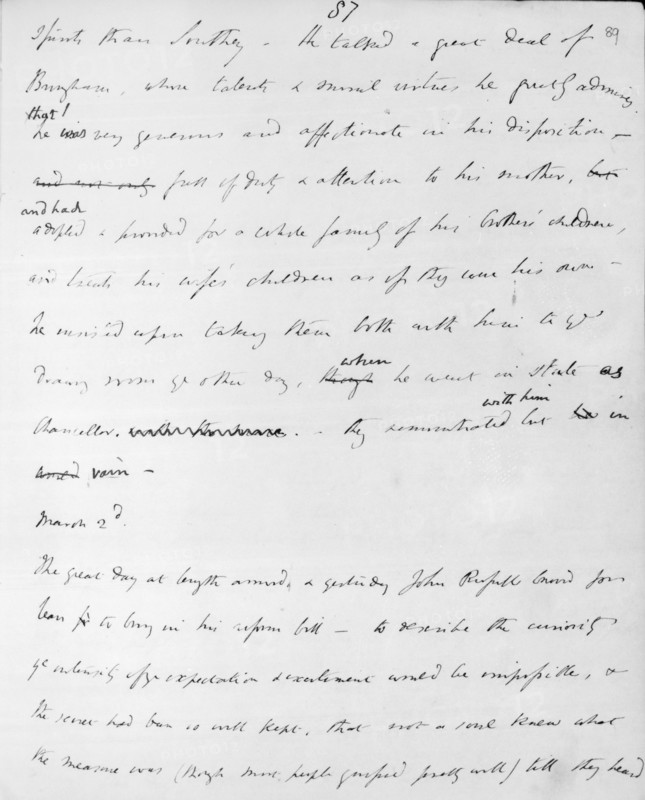 87
89
Spirits than Southey – He talked a great deal of
Brougham, whose talents & moral virtues he greatly admires,
that!
he was very generous and affectionate in his disposition –
and not only full of duty & attention to his mother, but
and had
adopted & provided for a whole family of his brother's children,
and treats his wife's children as if they were his own –
he insisted upon taking them both with him to ye
Drawing room ye other day, though when he went in state as
Chancellor. – they remonstrated with him but in
vain –
March 2d.
The great day at length arrived, & yesterday John Russell moved for
leave to bring in his reform bill – to describe the curiosity
ye intensity of ye expectation & excitement would be impossible, &
the secret had been so well kept, that not a soul knew what
the measure was (though most people guessed pretty well) till they heard